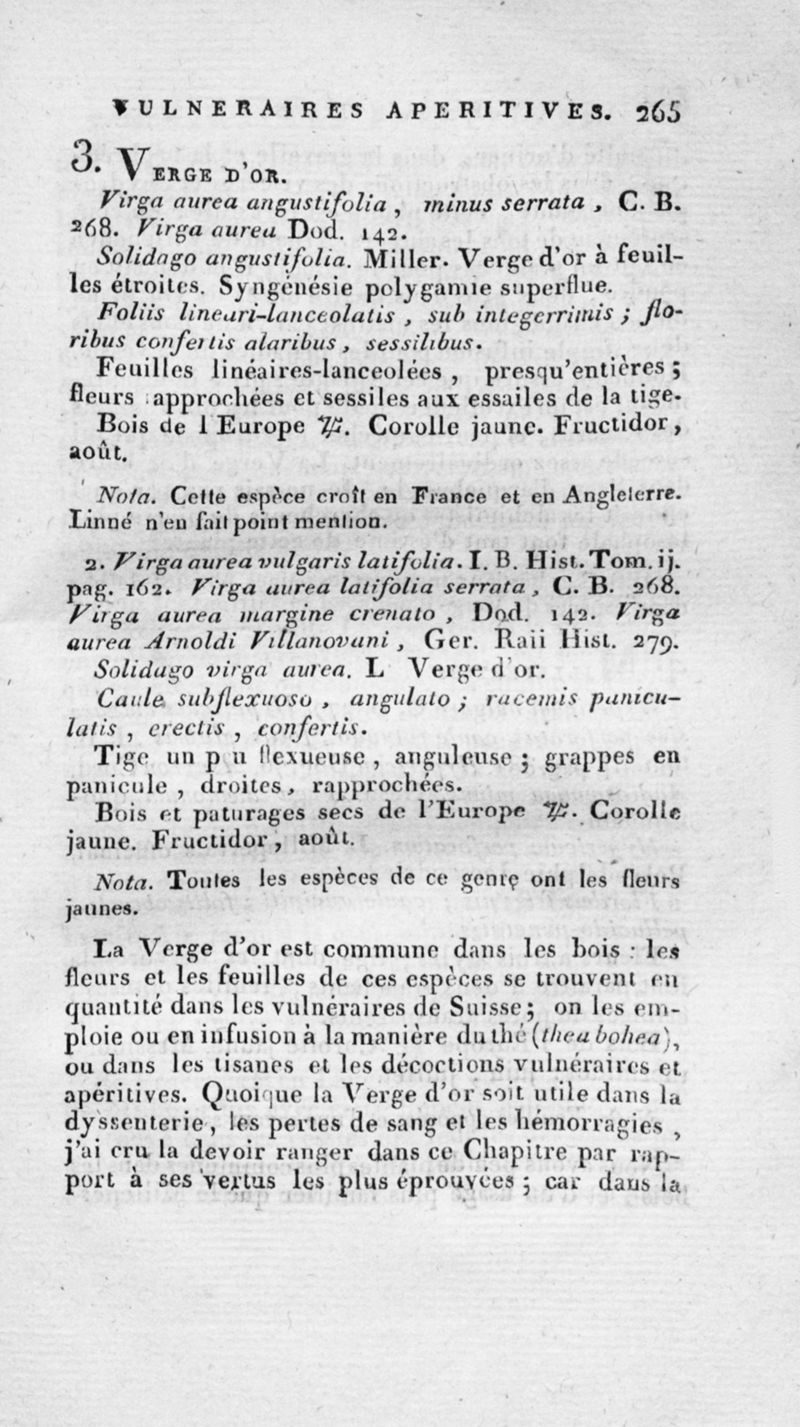 VULNERAIRES APERITIVES. 265
3. VERGE D'OR.
Virga aurea angustifolia , minus serrata , C. B.
268. Virga aurea Dod. 142.
Solidago angustifolia. Miller. Verge d'or à feuil-
les étroites. Syngénésie polygamie superflue.
Foliis lineari-lanceolatis , sub integerrimis ; flo-
ribus confertis alaribus , sessilibus.
Feuilles linéaires-lanceolées , presqu'entières ;
fleurs approchées et sessiles aux essailes de la tige.
Bois de l Europe ♃. Corolle jaune. Fructidor,
août.
Nota. Cette espèce croît en France et en Angleterre.
Linné n'en fait point mention.
2. Virga aurea vulgaris latifolia. I. B. Hist. Tom. ij.
pag. 162. Virga aurea latifolia serrata , C. B. 268.
Virga aurea margine crenato , Dod. 142. Virga
aurea Arnoldi Villanovani , Ger. Raii Hist. 279.
Solidago virga aurea. L Verge d'or.
Caule subflexuoso , angulato ; racemis panicu-
latis , erectis , confertis.
Tige un p u flexueuse , anguleuse ; grappes en
panicule , droites, rapprochées.
Bois et paturages secs de l'Europe ♃. Corolle
jaune. Fructidor, août.
Nota. Toutes les espèces de ce genre ont les fleurs
jaunes.
La Verge d'or est commune dans les bois : les
fleurs et les feuilles de ces espèces se trouvent en
quantité dans les vulnéraires de Suisse; on les em-
ploie ou en infusion à la manière du thé (thea bohea),
ou dans les tisanes et les décoctions vulnéraires et
apéritives. Quoique la Verge d'or soit utile dans la
dyssenterie , les pertes de sang et les hémorragies ,
j'ai cru la devoir ranger dans ce Chapitre par rap-
port à ses vertus les plus éprouvées ; car dans la